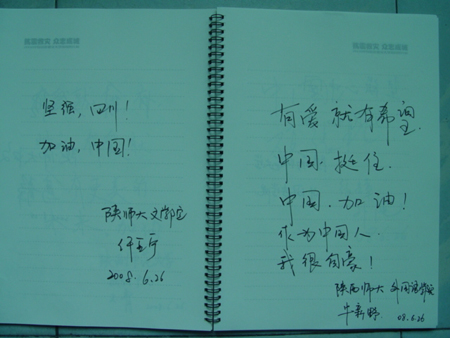 坚强,四川!
加油,中国!
陕师大文学院
2008.6.26
有爱就有希望.
中国.挺住.
中国.加油!
作为中国人.
我很自豪!
陕西师大 外国语学院
08.6.26